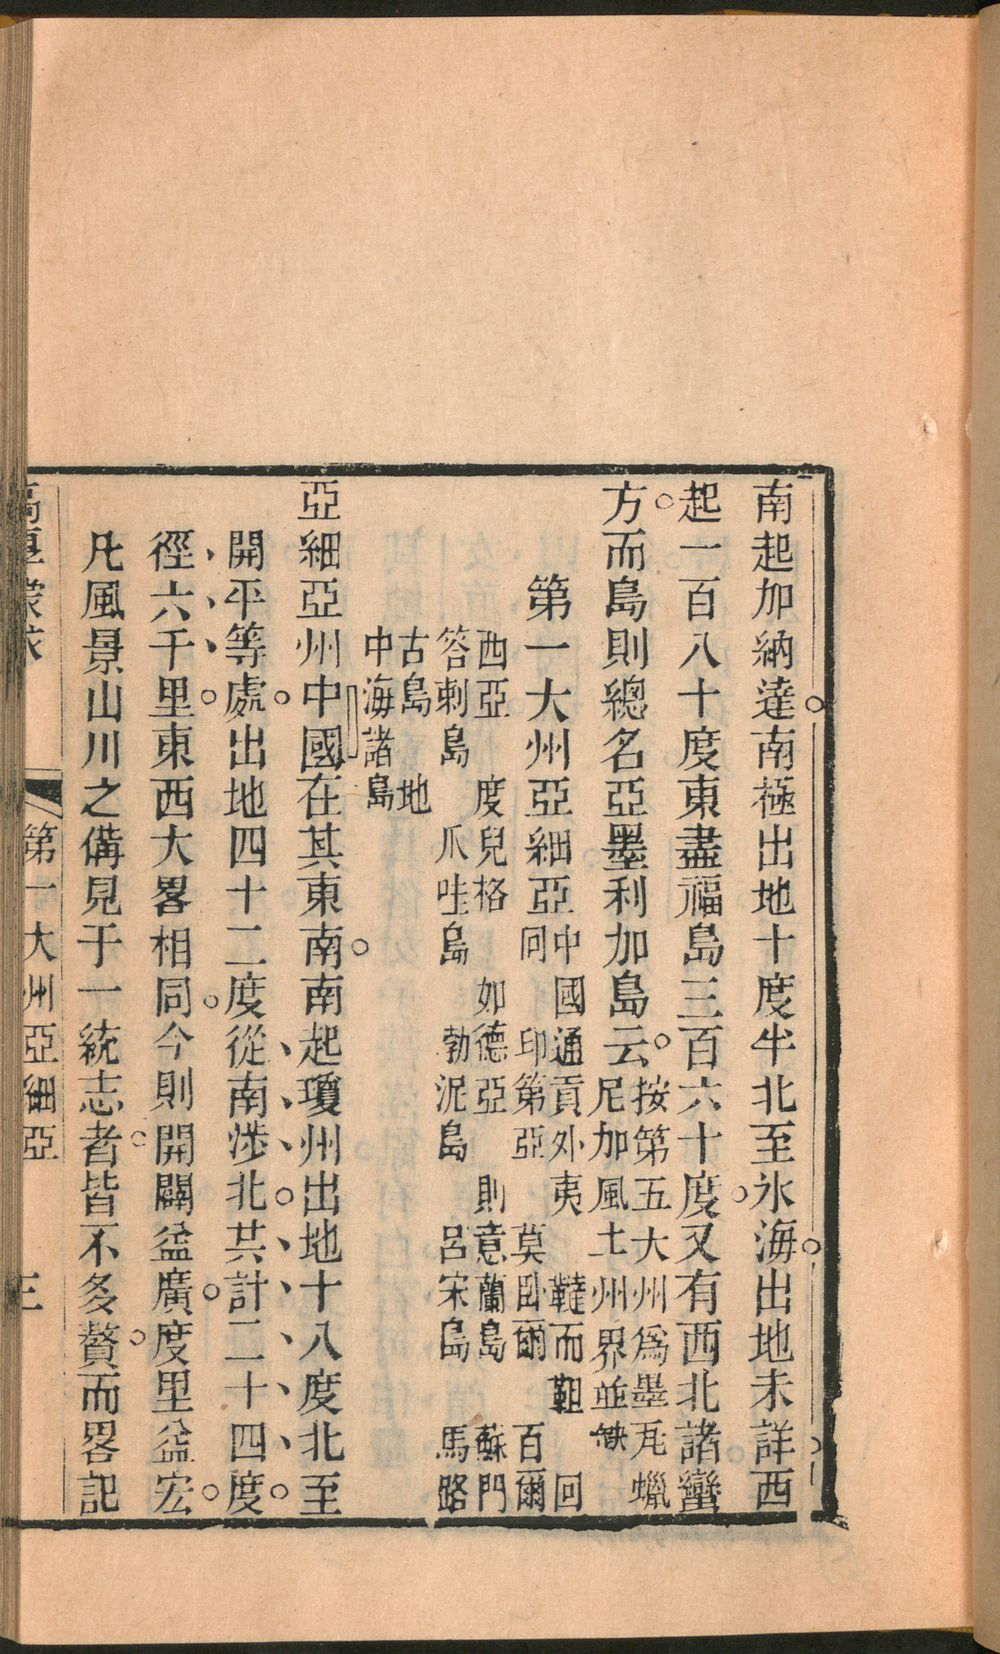 南起加納達南極出地十度半北至氷海出地未詳西
起一百八十度東盡福島三百六十度又有西北諸蠻
方而島則總名亞墨利加島云
按第五大州爲墨瓦蠟
尼加風土州界並缺
第一大州亞細亞
中國通貢外夷　韃而靼　回
回　印第亞　莫臥爾　百爾
西亞　度兒格　如德亞　則意蘭島　蘇門
答剌島　爪哇島　勃泥島　呂宋島　馬路
古島　地
中海諸島
亞細亞州中國在其東南南起瓊州出地十八度北至
開平等處出地四十二度從南涉北共計二十四度
徑六千里東西大畧相同今則開闢益廣度里益宏
凡風景山川之備見于一統志者皆不多贅而畧記
高厚蒙求　第一大州亞細亞　三